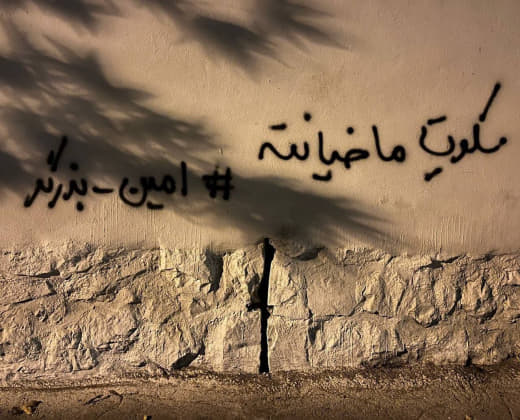 سکوتِ ما خیانته
#امین_بذرگر